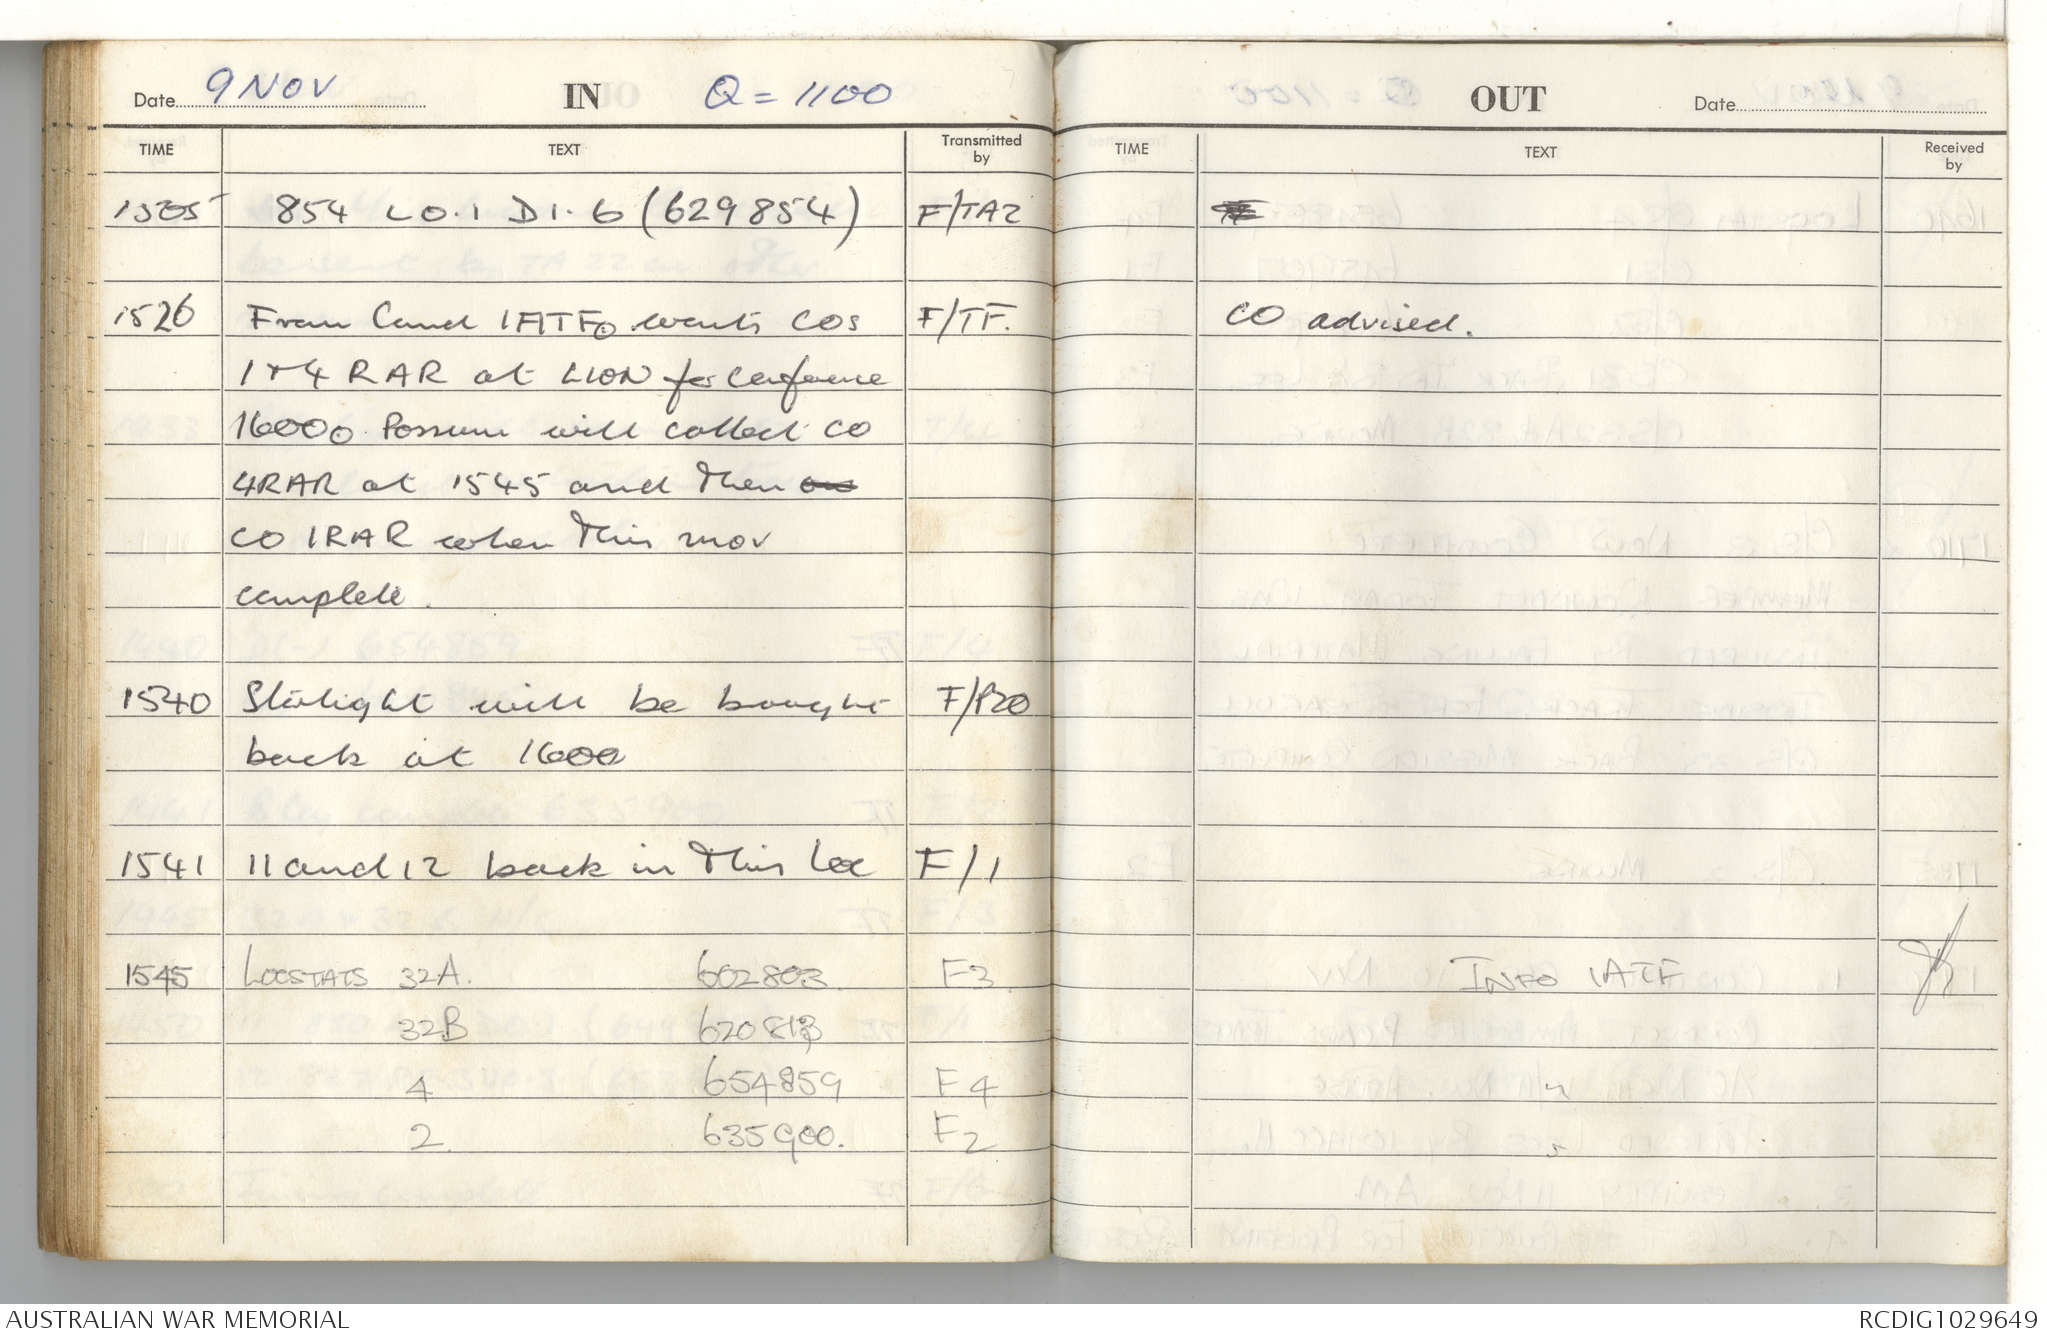 Date 9 NOV IN Q = 1100
TIME TEXT Transmitted by
1505 854 LO.1 D1.6 (629854) F/TA2
1526 From Comd 1ATF. wants COs F/TF.
1 + 4 RAR at LION for conference
1600. Possum will collect CO
4RAR at 1545 and then
CO 1RAR when this mov
complete.
1540 Starlight will be bought
back at 1600
1541 11 and 12 back in this loc F/1
1545 LOCSTATS 32A. 602803. F3
32B 620813
4 654859 F4
2. 635900. F2
OUT Date
TIME TEXT Received by
CO advised.
INFO 1ATF
AUSTRALIAN WAR MEMORIAL
RCDIG1029649